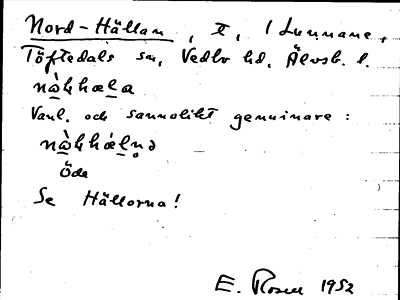 Nord-Hällan, t, i Lunnane,
Töftedals sn, Vedbo hd, Älvsb. l.
nàkhæla
Vanl. och sannolikt genuinare:
nàkhǽlnə
Öde
Se Hällorna!
E. Rosen 1952